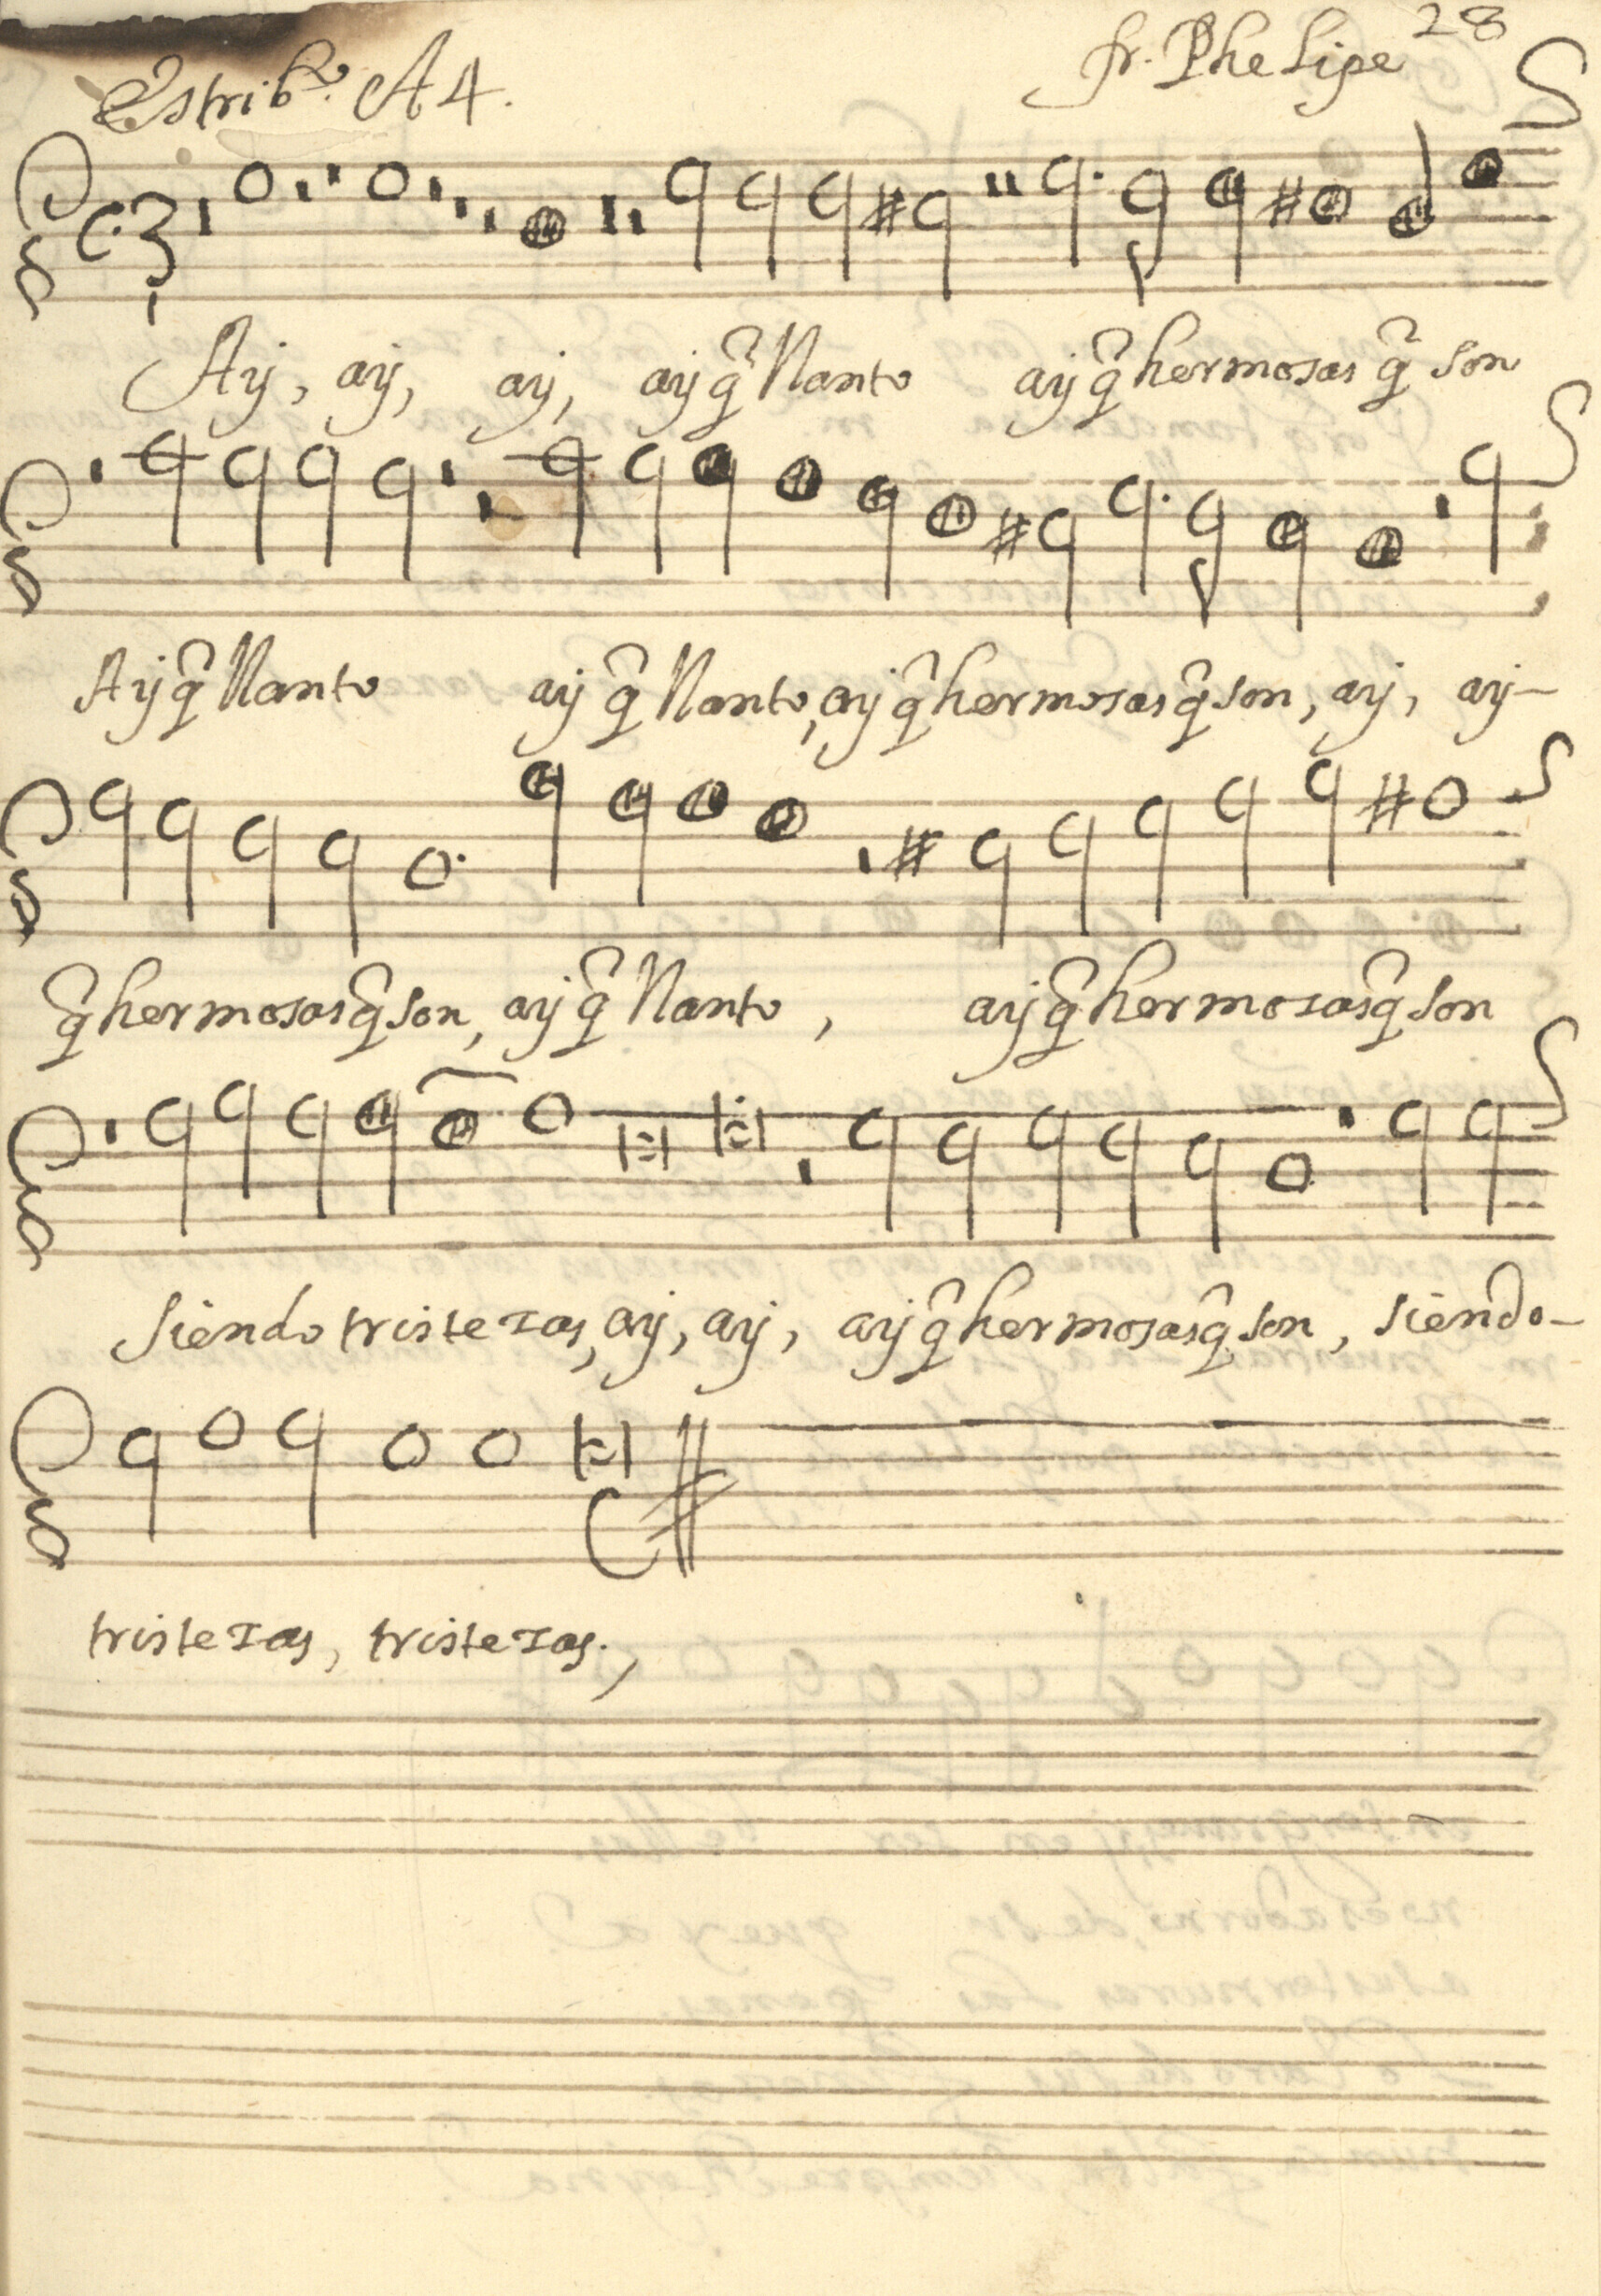 28
Estribo. A 4. fr. Phelipe
Ay, ay, ay, ay q̃ llanto ay q̃ hermosas q̃ son
Ay q̃ llanto ay q̃ llanto, ay q̃ hermosas q̃ son, ay, ay-
q̃ hermosas q̃ son, ay q̃ llanto, ay q̃ hermosas q̃ son
siendo tristezas, ay, ay, ay q̃ hermosas q̃ son, siendo-
tristezas, tristezas.,